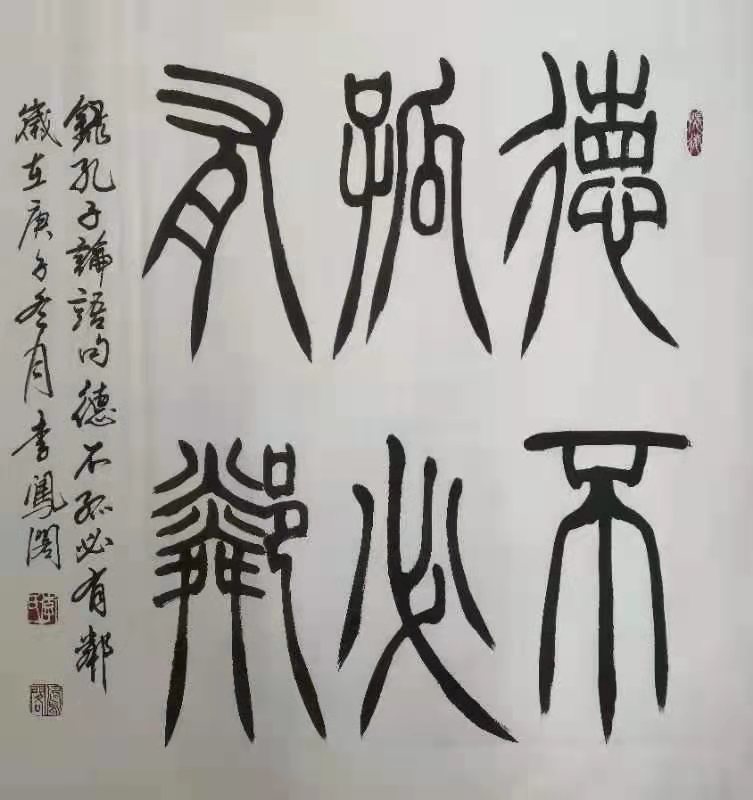 德不
孤必
有鄰
錄孔子論語句德不孤必有鄰
歲在庚子冬月李鳳閣
鳳閣